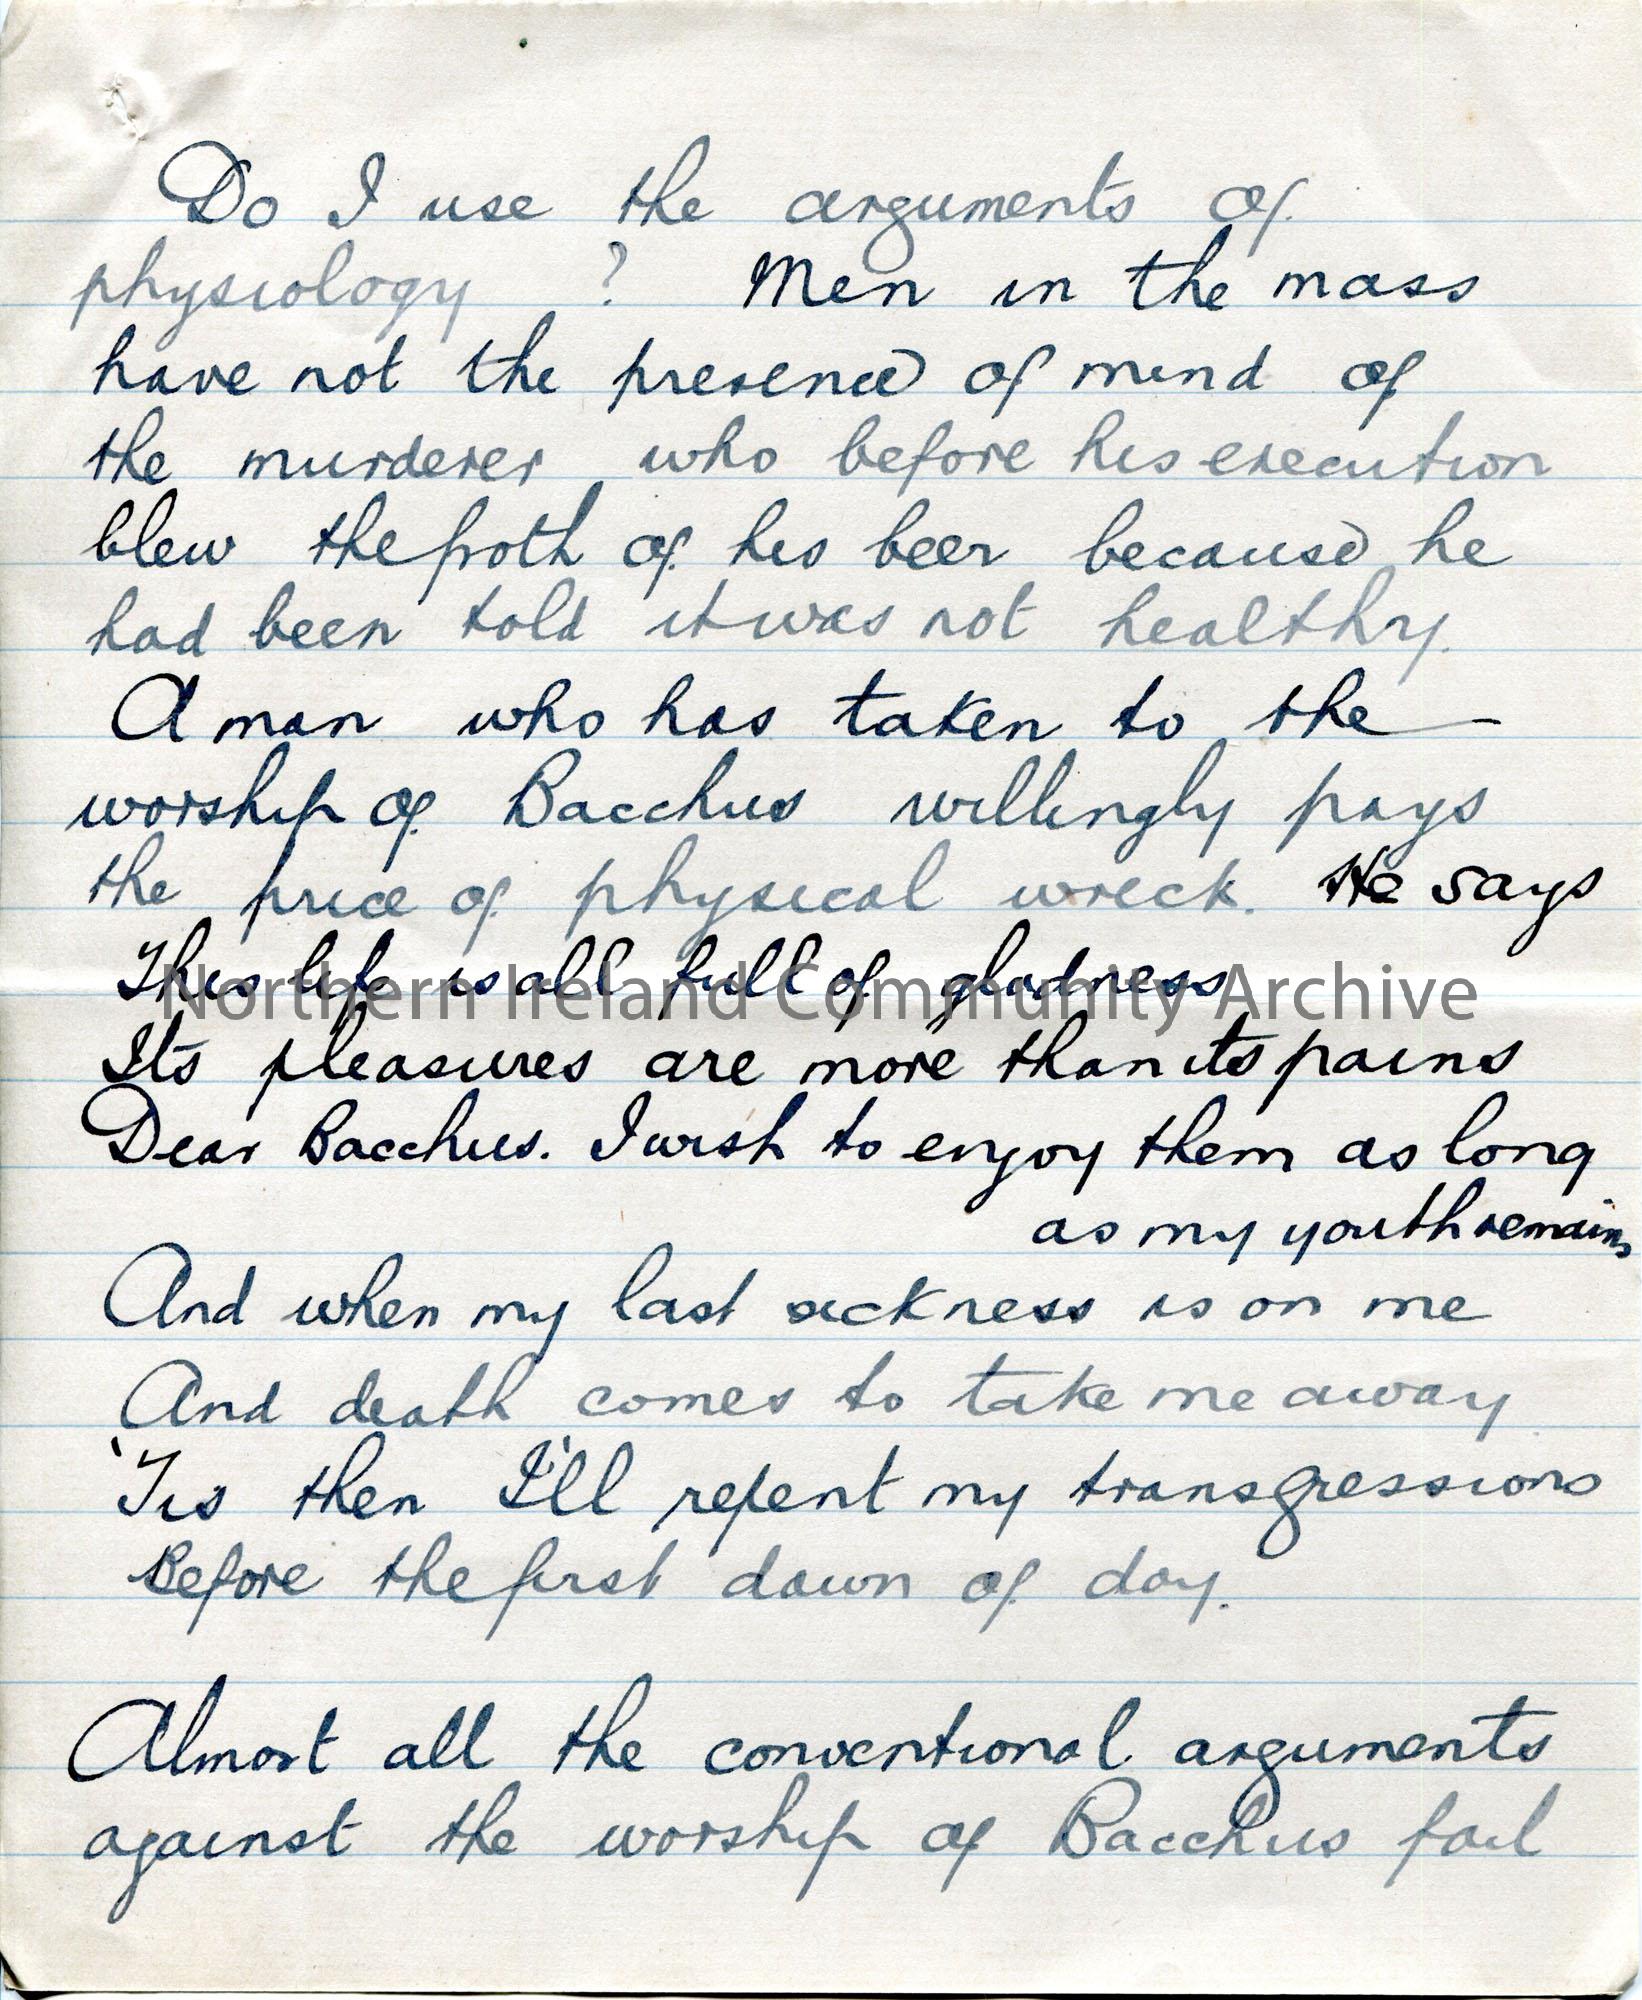 Do I use the arguments of
physiology ? Men in the mass
have not the presence of mind of
the murderer who before his execution
blew the froth of his beer because he
had been told it was not healthy.
A man who has taken to the
worship of Bacchus willingly pays
the price of physical wreck. He says
This life is all full of gladness
Northern Ireland Community Archive
Its pleasures are more than its pains
Dear Bacchus. I wish to enjoy them as long
as my youth remains
And when my last sickness is on me
And death comes to take me away
'Tis then I'll repent my transgressions
Before the first dawn of day.
Almost all the conventional arguments
against the worship of Bacchus fail